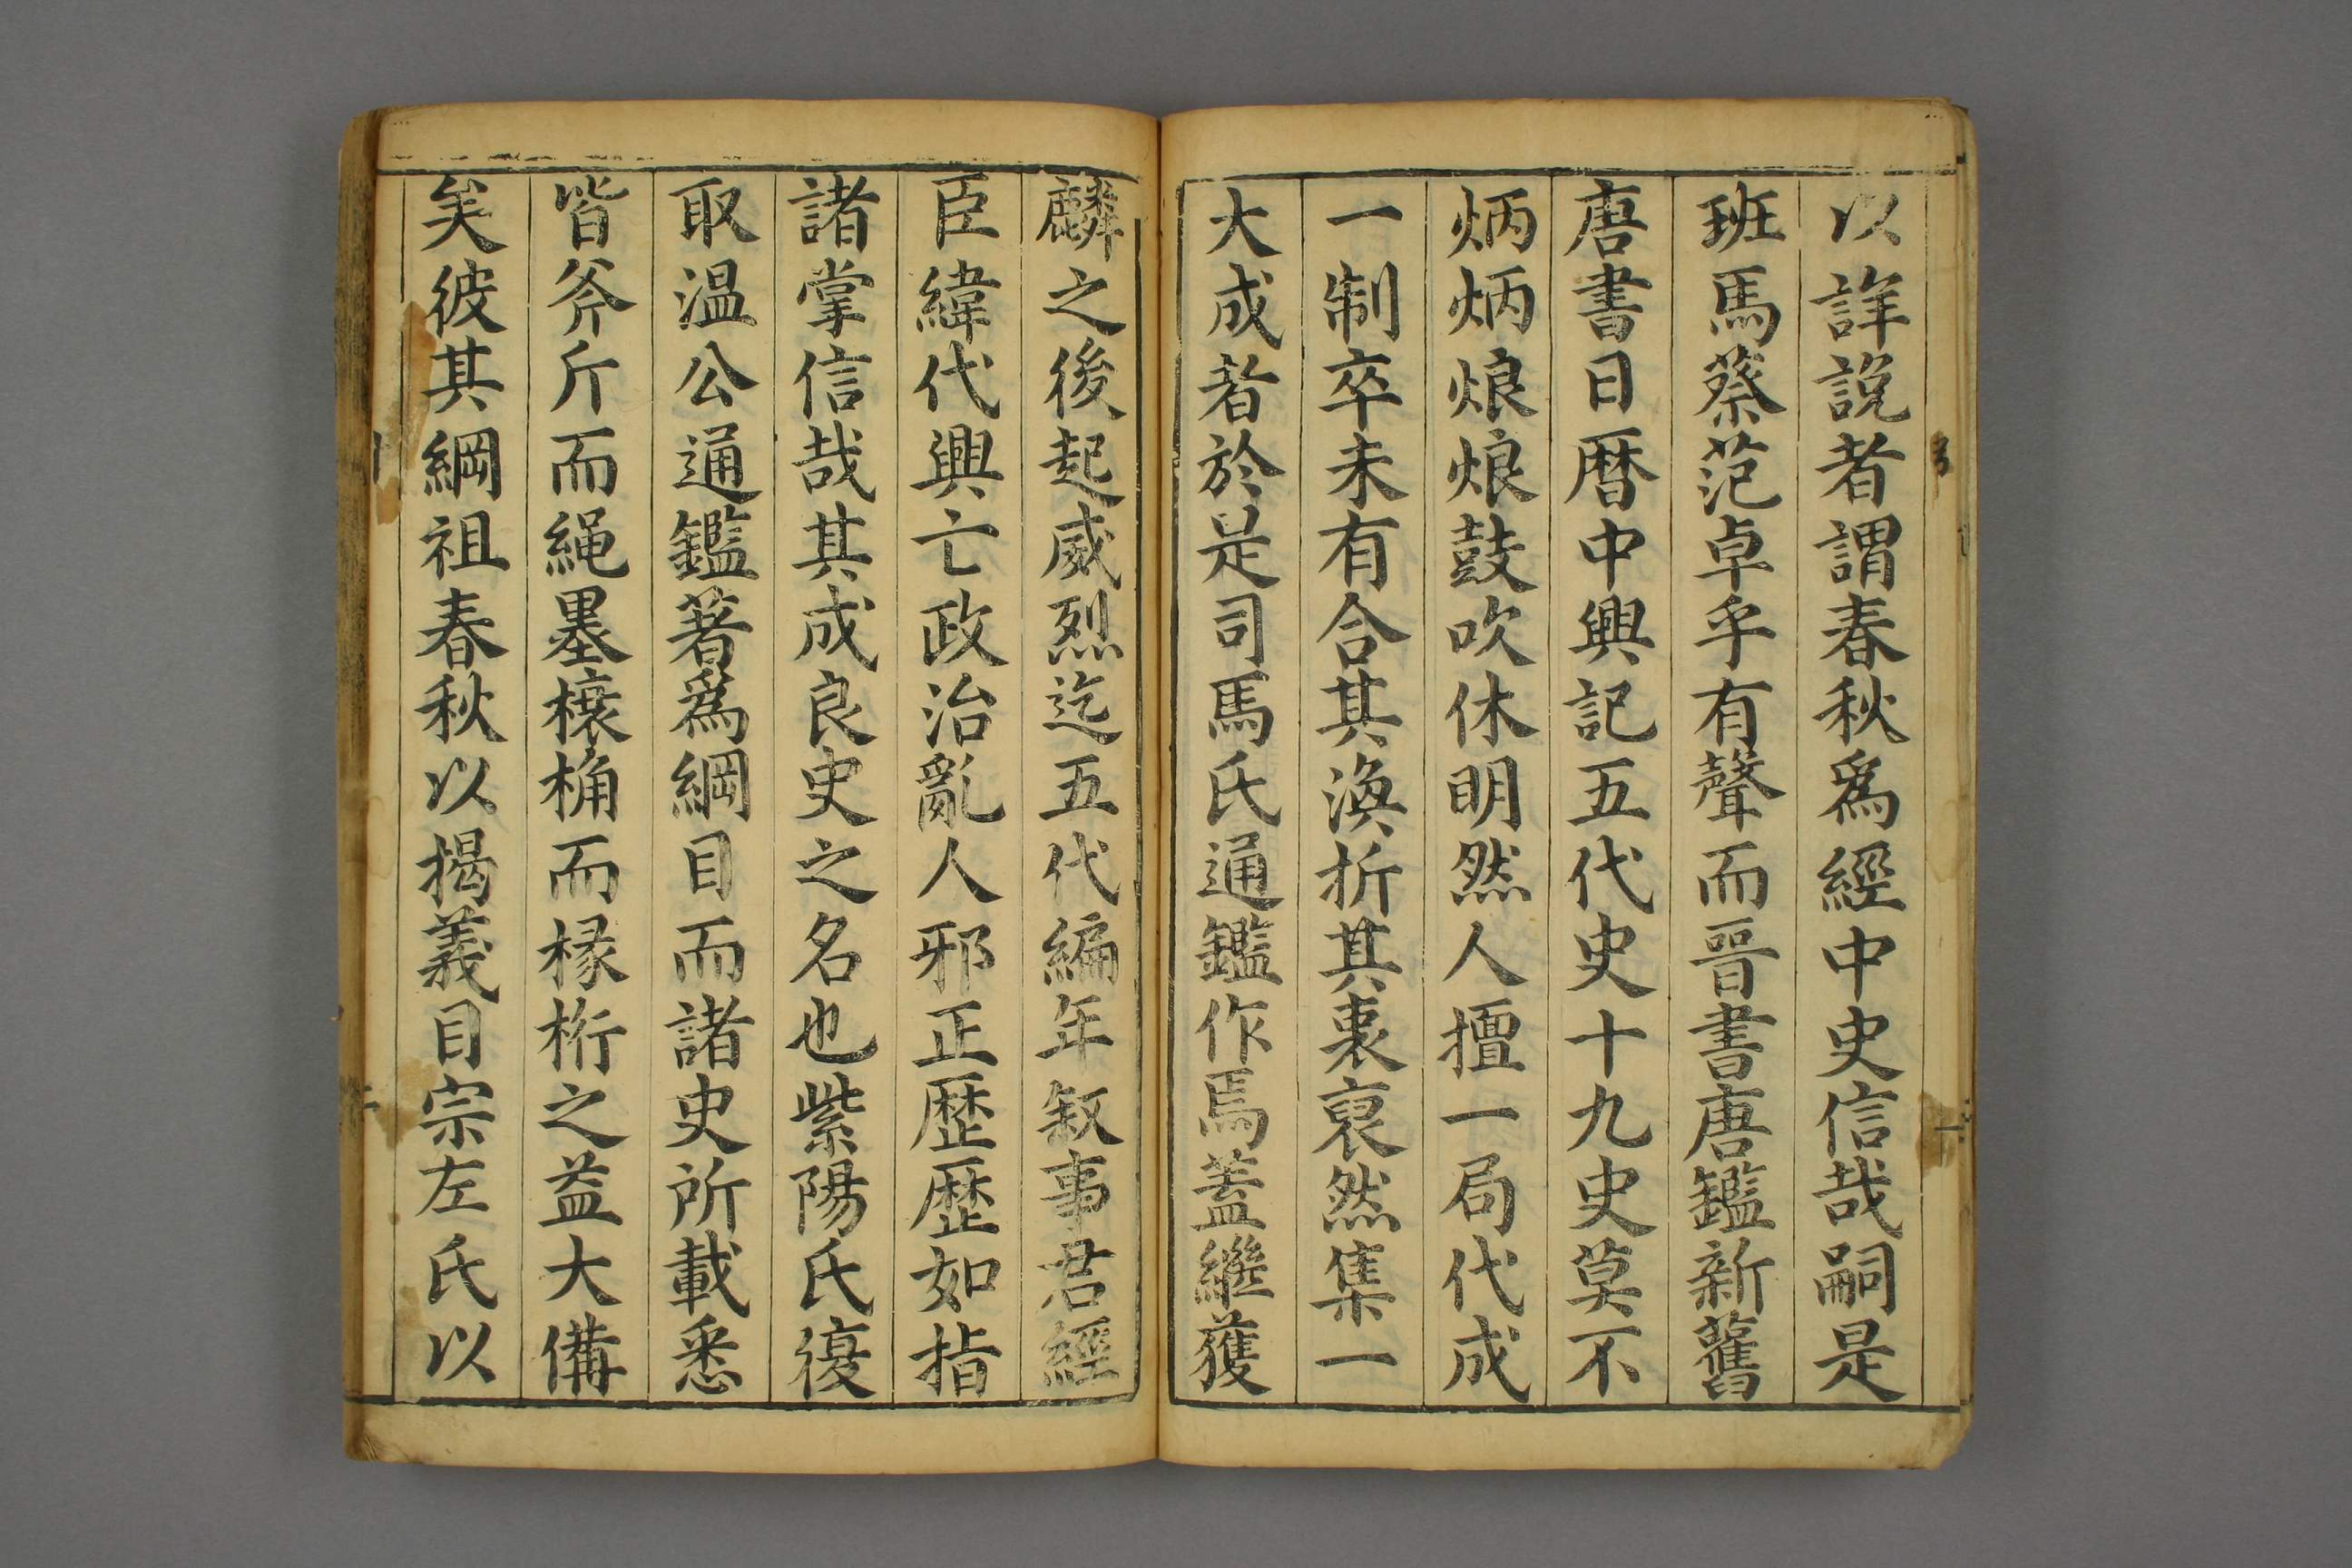 以詳說者謂春秋爲經中史信哉嗣是
班馬蔡范卓乎有聲而晉書唐鑑新舊
唐書日曆中興記五代史十九史莫不
炳炳烺烺鼓吹休明然人擅一局代成
一制卒未有合其渙折其衷裒然集一
大成者於是司馬氏通鑑作焉蓋繼獲
麟之後起威烈迄五代編年敘事君經
臣緯代興亡政治亂人邪正歷歷如指
諸掌信哉其成良史之名也紫陽氏復
取温公通鑑著爲綱目而諸史所載悉
皆斧斤而繩墨榱桷而椽桁之益大備
矣彼其綱祖春秋以揭義目宗左氏以